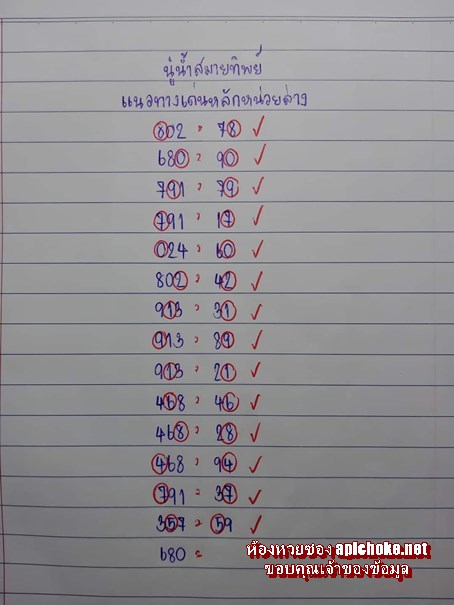 นู๋น้ำสมายทิพย์
แนวทางเด่นหลักหน่วยล่าง
802 = 78 ✓
680 = 90 ✓
791 = 79 ✓
791 = 17 ✓
024 = 60 ✓
802 = 42 ✓
913 = 31 ✓
913 = 89 ✓
913 = 21 ✓
468 = 46 ✓
468 = 28 ✓
468 = 94 ✓
791 = 37 ✓
357 = 59 ✓
680 =
ห้องหวยซอง apichoke.net
ขอบคุณเจ้าของข้อมูล